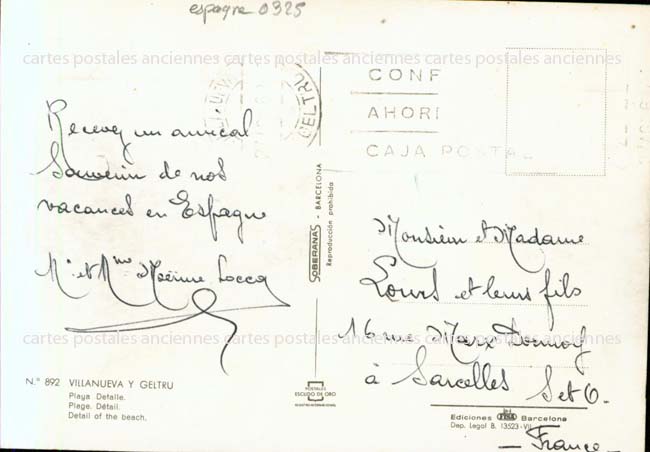 espagne 0325
cartes postales anciennes cartes postales anciennes cartes postales anciennes
GELTRU
CONF
AHORI
CAJA POSTAL
Recevez un amical
Souvenir de nos
vacances en Espagne
Mr et Mme
cartes postales anciennes cartes postales anciennes cartes postales anciennes
SOBERANAS - BARCELONA
Reproducción prohibida
Monsieur et Madame
et leurs fils
16 rue Marx Dormoy
à Sarcelles S et O.
- France -
N.º 892 VILLANUEVA Y GELTRU
Playa Detalle.
Plage. Détail.
Detail of the beach.
POSTALES
ESCUDO DE ORO
Ediciones FISA Barcelona
Dep. Legal B. 13523-VII